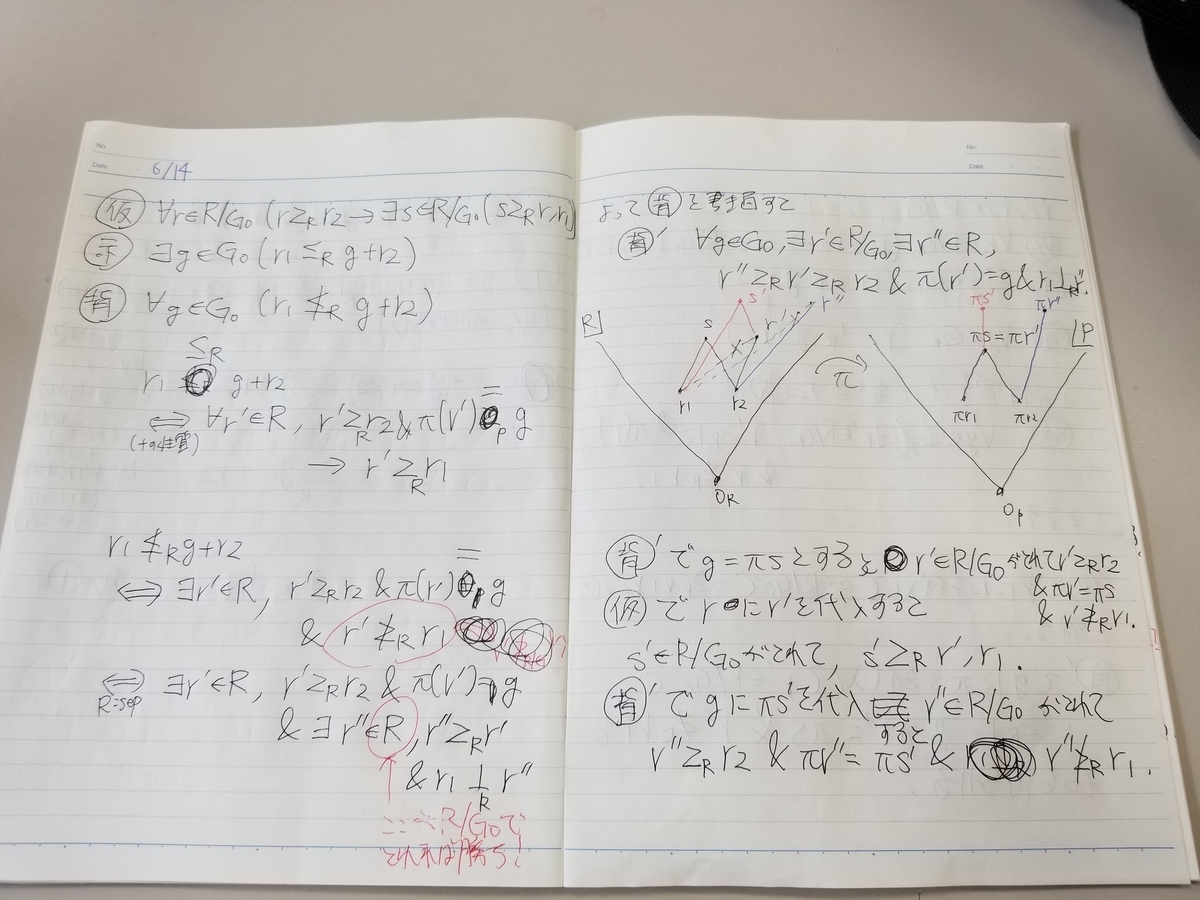 No.
Date 6/14
仮 ∀r∈R/G₀ (r≥_R r₂ → ∃s∈R/G₀ (s≥_R r, r₁)
示 ∃g∈G₀ (r₁ ≤_R g+r₂)
背 ∀g∈G₀ (r₁ ≰_R g+r₂)
≤_R
r₁ g+r₂
⇔ ∀r'∈R, r'≥_R r₂ & π(r') =_P g
(+の性質)
→ r'≥_R r₁
r₁ ≰_R g+r₂
⇔ ∃r'∈R, r'≥_R r₂ & π(r') =_P g
& r' ≱_R r₁
⇔ ∃r'∈R, r'≥_R r₂ & π(r')=_P g
R=sep
& ∃r''∈R, r''≥_R r'
& r₁ ⊥_R r''
ここがR/G₀で
とれれば勝ち!
No.
Date
よって 背 を書き直すと
背' ∀g∈G₀, ∃r'∈R/G₀, ∃r''∈R,
r''≥_R r'≥_R r₂ & π(r')=g & r₁⊥_R r''.
R
s'
s
r'
r''
r₁
r₂
0_R
π
πs'
πr''
πs=πr'
P
πr₁
πr₂
0_P
背' で g=πsとすると r'∈R/G₀がとれて r'≥_R r₂
& πr'=πs
& r'≱_R r₁.
仮 で r に r'を代入すると
s'∈R/G₀がとれて, s'≥_R r', r₁.
背' で g に πs'を代入すると r''∈R/G₀ がとれて
r''≥_R r₂ & πr''= πs' & r''≱_R r₁.